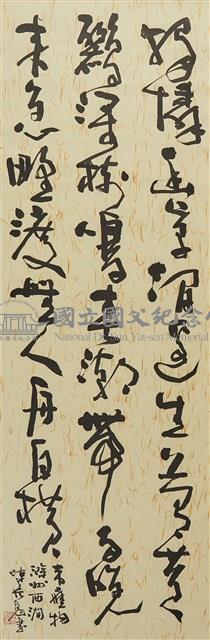 獨憐幽草澗邊生上有黃
鸝深樹鳴春潮帶雨晚
來急野渡無人舟自橫
韋應物
滁州西澗
陳書
國立國父紀念館
National Dr. Sun Yat-sen Memorial